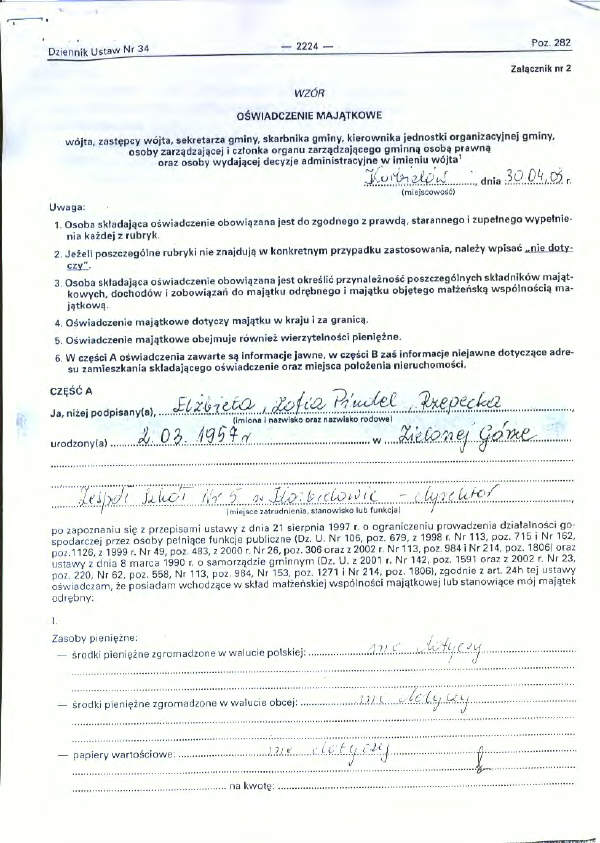 Dziennik Ustaw Nr 34 — 2224 — Poz. 282
Załącznik nr 2
WZÓR
OŚWIADCZENIE MAJĄTKOWE
wójta, zastępcy wójta, sekretarza gminy, skarbnika gminy, kierownika jednostki organizacyjnej gminy,
osoby zarządzającej i członka organu zarządzającego gminną osobą prawną
oraz osoby wydającej decyzje administracyjne w imieniu wójta¹
, dnia 30.04.03 r.
(miejscowość)
Uwaga:
1. Osoba składająca oświadczenie obowiązana jest do zgodnego z prawdą, starannego i zupełnego wypełnie-
nia każdej z rubryk.
2. Jeżeli poszczególne rubryki nie znajdują w konkretnym przypadku zastosowania, należy wpisać „nie doty-
czy".
3. Osoba składająca oświadczenie obowiązana jest określić przynależność poszczególnych składników mająt-
kowych, dochodów i zobowiązań do majątku odrębnego i majątku objętego małżeńską wspólnością ma-
jątkową.
4. Oświadczenie majątkowe dotyczy majątku w kraju i za granicą.
5. Oświadczenie majątkowe obejmuje również wierzytelności pieniężne.
6. W części A oświadczenia zawarte są informacje jawne, w części B zaś informacje niejawne dotyczące adre-
su zamieszkania składającego oświadczenie oraz miejsca położenia nieruchomości.
CZĘŚĆ A
Ja, niżej podpisany(a), Elżbieta, Zofia Pindel, Rzepecka,
(imiona i nazwisko oraz nazwisko rodowe)
urodzony(a) 2.03.1957 r w Zielonej Górze
Zespół Szkół Nr 5 w - dyrektor,
(miejsce zatrudnienia, stanowisko lub funkcja)
po zapoznaniu się z przepisami ustawy z dnia 21 sierpnia 1997 r. o ograniczeniu prowadzenia działalności go-
spodarczej przez osoby pełniące funkcje publiczne (Dz. U. Nr 106, poz. 679, z 1998 r. Nr 113, poz. 715 i Nr 162,
poz.1126, z 1999 r. Nr 49, poz. 483, z 2000 r. Nr 26, poz. 306 oraz z 2002 r. Nr 113, poz. 984 i Nr 214, poz. 1806) oraz
ustawy z dnia 8 marca 1990 r. o samorządzie gminnym (Dz. U. z 2001 r. Nr 142, poz. 1591 oraz z 2002 r. Nr 23,
poz. 220, Nr 62, poz. 558, Nr 113, poz. 984, Nr 153, poz. 1271 i Nr 214, poz. 1806), zgodnie z art. 24h tej ustawy
oświadczam, że posiadam wchodzące w skład małżeńskiej wspólności majątkowej lub stanowiące mój majątek
odrębny:
I.
Zasoby pieniężne:
— środki pieniężne zgromadzone w walucie polskiej: nie dotyczy
— środki pieniężne zgromadzone w walucie obcej: nie dotyczy
— papiery wartościowe: nie dotyczy
na kwotę: